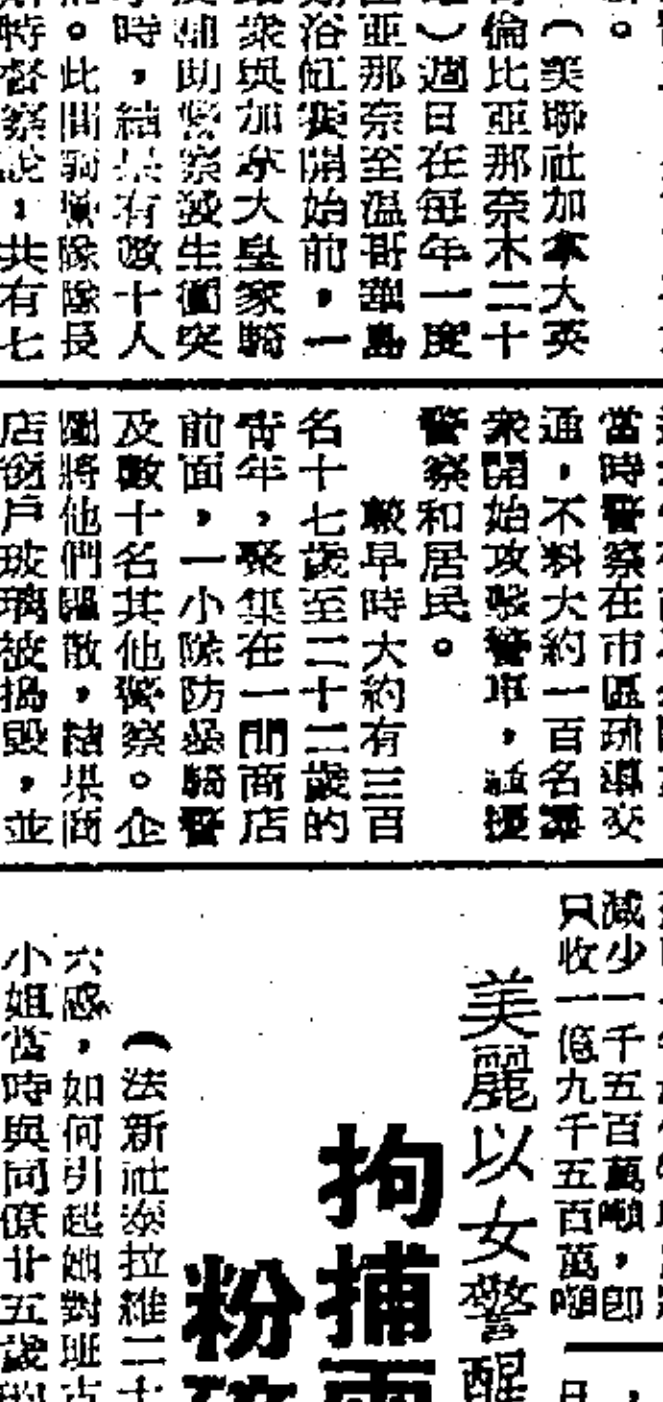 （美聯社加拿大英
倫比亞那奈木二十
）週日在每年一度
亞那奈至溫哥華島
浴缸賽開始前，一
衆與加拿大皇家騎
助警察發生衝突
時，結果有數十人
。此間騎隊隊長
特督察說：共有七
當時警察在市區疏導交
通，不料大約一百名羣
衆開始攻擊警車，
警察和居民。
較早時大約有三百
名十七歲至二十二歲的
靑年，聚集在一間商店
前面，一小隊防暴騎警
及數十名其他警察。企
圖將他們驅散，結果商
店窗戶玻璃被搗毀，並
減少一千五百萬噸，即
只收一億九千五百萬噸
美麗以女警醒
拘捕
粉
（法新社泰拉維二十
六感，如何引起她對班
小姐當時與同僚廿五歲的